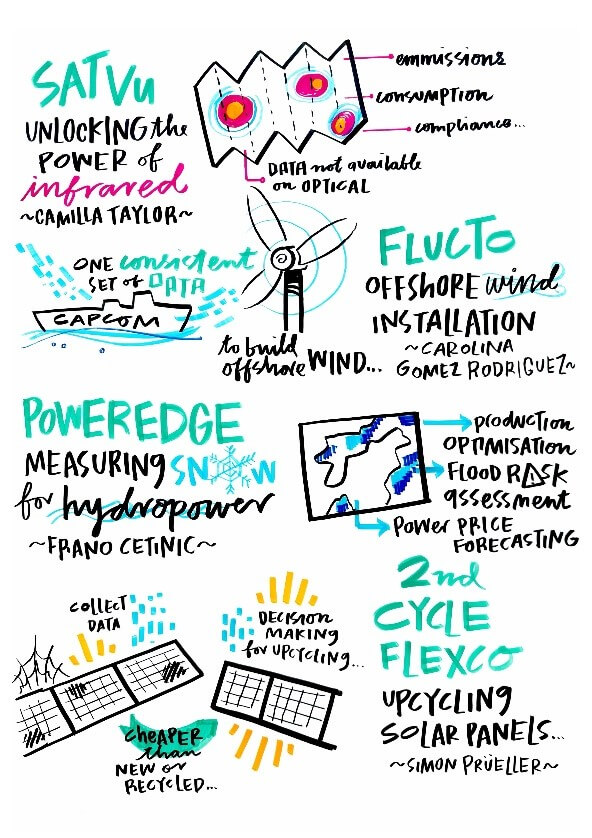 SATVU
UNLOCKING the
POWER of
infrared
~CAMILLA TAYLOR~
emmissions
consumption
compliance...
DATA not available
on OPTICAL
ONE consistent
SET of DATA
CAPCOM
to build
offshore WIND...
FLUCTO
OFFSHORE wind
INSTALLATION
~CAROLINA
GOMEZ RODRIGUEZ~
POWEREDGE
MEASURING SNOW
for hydropower
~FRANO CETINIC~
production
OPTIMISATION
FLOOD RISK
assessment
POWER PRICE
FORECASTING
COLLECT
DATA
DECISION
MAKING
for UPCYCLING...
CHEAPER
than
NEW or
RECYCLED...
2nd
CYCLE
FLEXCO
UPCYCLING
SOLAR PANELS...
~SIMON PRÜELLER~